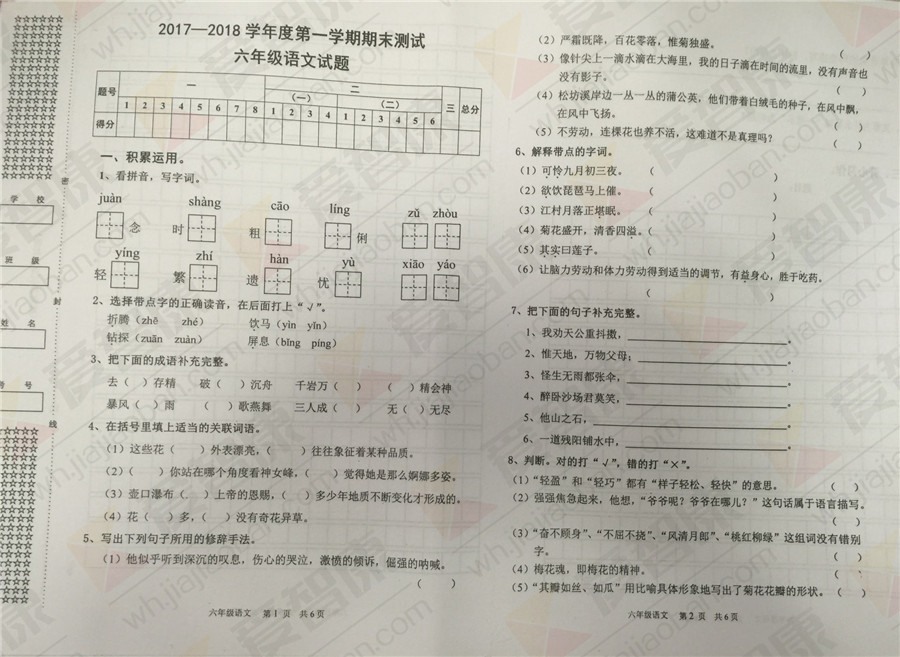 2017—2018 学年度第一学期期末测试
六年级语文试题
题号 一 二 三 总分
(一) (二)
1 2 3 4 5 6 7 8 1 2 3 4 1 2 3 4 5 6
得分
一、积累运用。
1、看拼音，写字词。
juàn shàng cāo líng zǔ zhòu
念 时 粗 俐
yíng zhí hàn yù xiāo yáo
轻 繁 遗 忧
2、选择带点字的正确读音，在后面打上“√”。
折腾（zhē zhé） 饮马（yìn yǐn）
钻探（zuān zuàn） 屏息（bǐng píng）
3、把下面的成语补充完整。
去（ ）存精 破（ ）沉舟 千岩万（ ） （ ）精会神
暴风（ ）雨 （ ）歌燕舞 三人成（ ） 无（ ）无尽
4、在括号里填上适当的关联词语。
（1）这些花（ ）外表漂亮，（ ）往往象征着某种品质。
（2）（ ）你站在哪个角度看神女峰，（ ）觉得她是那么婀娜多姿。
（3）壶口瀑布（ ）上帝的恩赐，（ ）多少年地质不断变化才形成的。
（4）花（ ）多，（ ）没有奇花异草。
5、写出下列句子所用的修辞手法。
（1）他似乎听到深沉的叹息，伤心的哭泣，激愤的倾诉，倔强的呐喊。
（ ）
六年级语文 第1页 共6页
（2）严霜既降，百花零落，惟菊独盛。
（ ）
（3）像针尖上一滴水滴在大海里，我的日子滴在时间的流里，没有声音也
没有影子。
（ ）
（4）松坊溪岸边一丛一丛的蒲公英，他们带着白绒毛的种子，在风中飘，
在风中飞扬。
（ ）
（5）不劳动，连棵花也养不活，这难道不是真理吗？
（ ）
6、解释带点的字词。
（1）可怜九月初三夜。 （ ）
（2）欲饮琵琶马上催。 （ ）
（3）江村月落正堪眠。 （ ）
（4）菊花盛开，清香四溢。（ ）
（5）其实曰莲子。 （ ）
（6）让脑力劳动和体力劳动得到适当的调节，有益身心，胜于吃药。
（ ）
7、把下面的句子补充完整。
1、我劝天公重抖擞，。
2、惟天地，万物父母；。
3、怪生无雨都张伞，。
4、醉卧沙场君莫笑，。
5、他山之石，。
6、一道残阳铺水中，。
8、判断。对的打“√”，错的打“×”。
（1）“轻盈”和“轻巧”都有“样子轻松、轻快”的意思。 （ ）
（2）强强焦急起来，他想，“爷爷呢？爷爷在哪儿？”这句话属于语言描写。
（ ）
（3）“奋不顾身”、“不屈不挠”、“风清月郎”、“桃红柳绿”这组词没有错别
字。 （ ）
（4）梅花魂，即梅花的精神。 （ ）
（5）“其瓣如丝、如瓜”用比喻具体形象地写出了菊花花瓣的形状。（ ）
六年级语文 第2页 共6页
学 校
班 级
姓 名
号
密
封
线
wh.jiajiaoban.com
爱智康